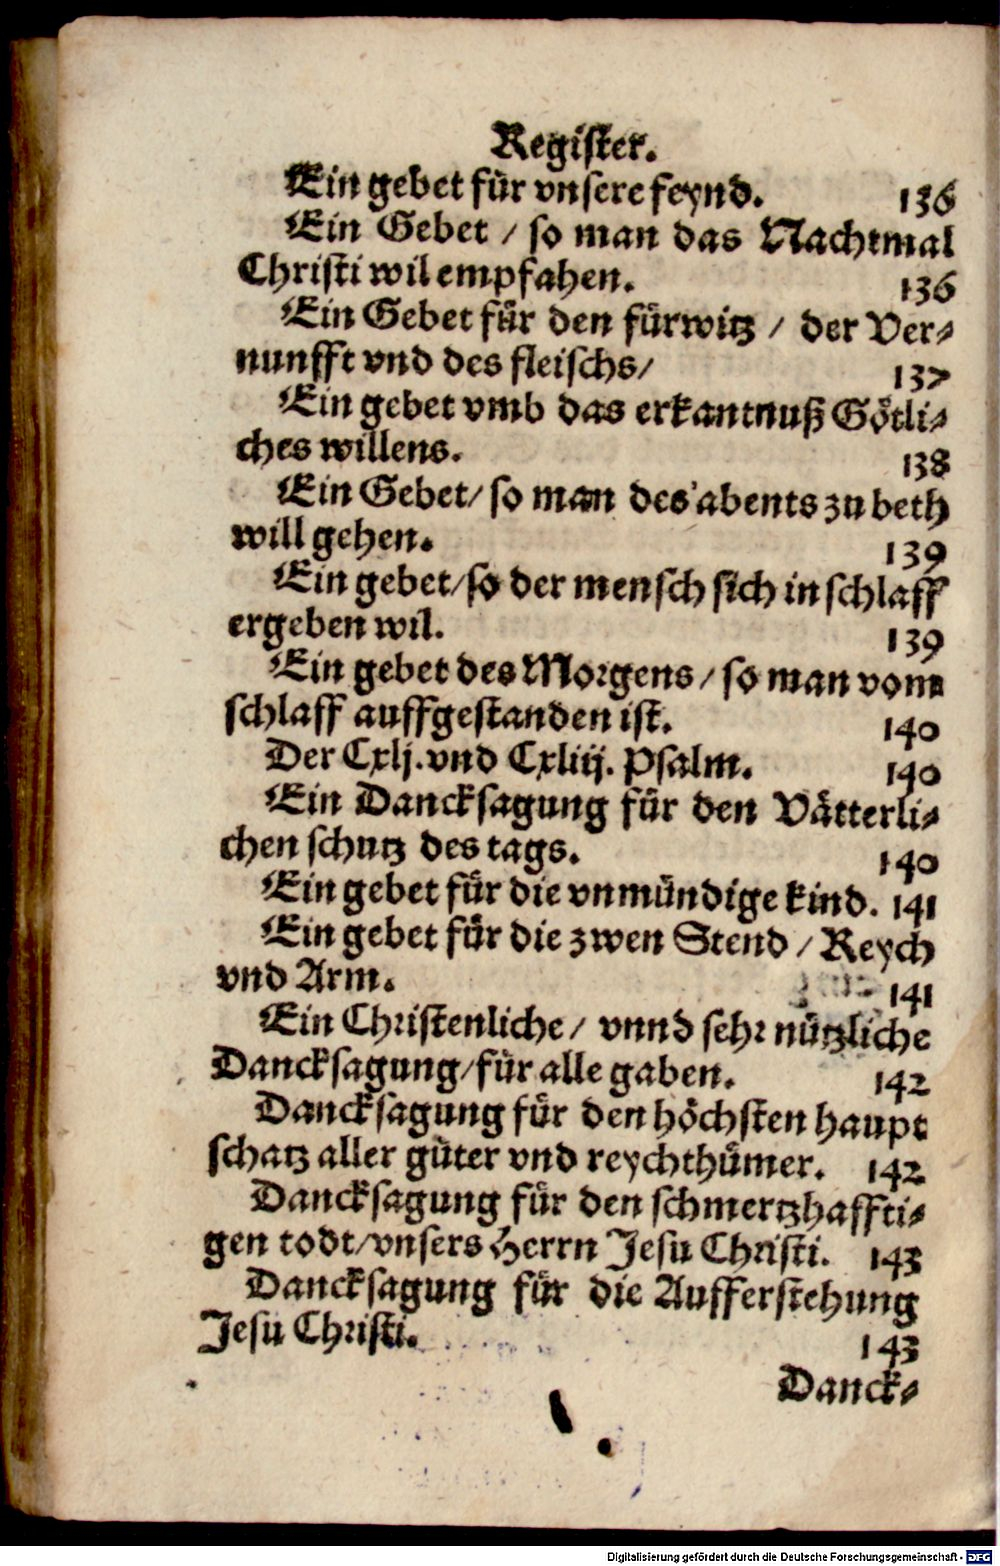 Register.
Ein gebet für vnsere feynd. 136
Ein Gebet / so man das Nachtmal
Christi wil empfahen. 136
Ein Gebet für den fürwitz / der Ver-
nunfft vnd des fleischs / 137
Ein gebet vmb das erkantnuß Götli-
ches willens. 138
Ein Gebet / so man des abents zu beth
will gehen. 139
Ein gebet / so der mensch sich in schlaff
ergeben wil. 139
Ein gebet des Morgens / so man vom
schlaff auffgestanden ist. 140
Der Cxlj. vnd Cxliij. Psalm. 140
Ein Dancksagung für den Vätterli-
chen schutz des tags. 140
Ein gebet für die vnmündige kind. 141
Ein gebet für die zwen Stend / Reych
vnd Arm. 141
Ein Christenliche / vnnd sehr nützliche
Dancksagung / für alle gaben. 142
Dancksagung für den höchsten haupt
schatz aller güter vnd reychthümer. 142
Dancksagung für den schmertzhaffti-
gen todt / vnsers Herrn Jesu Christi. 143
Dancksagung für die Aufferstehung
Jesu Christi. 143
Danck-
Digitalisierung gefördert durch die Deutsche Forschungsgemeinschaft - DFG